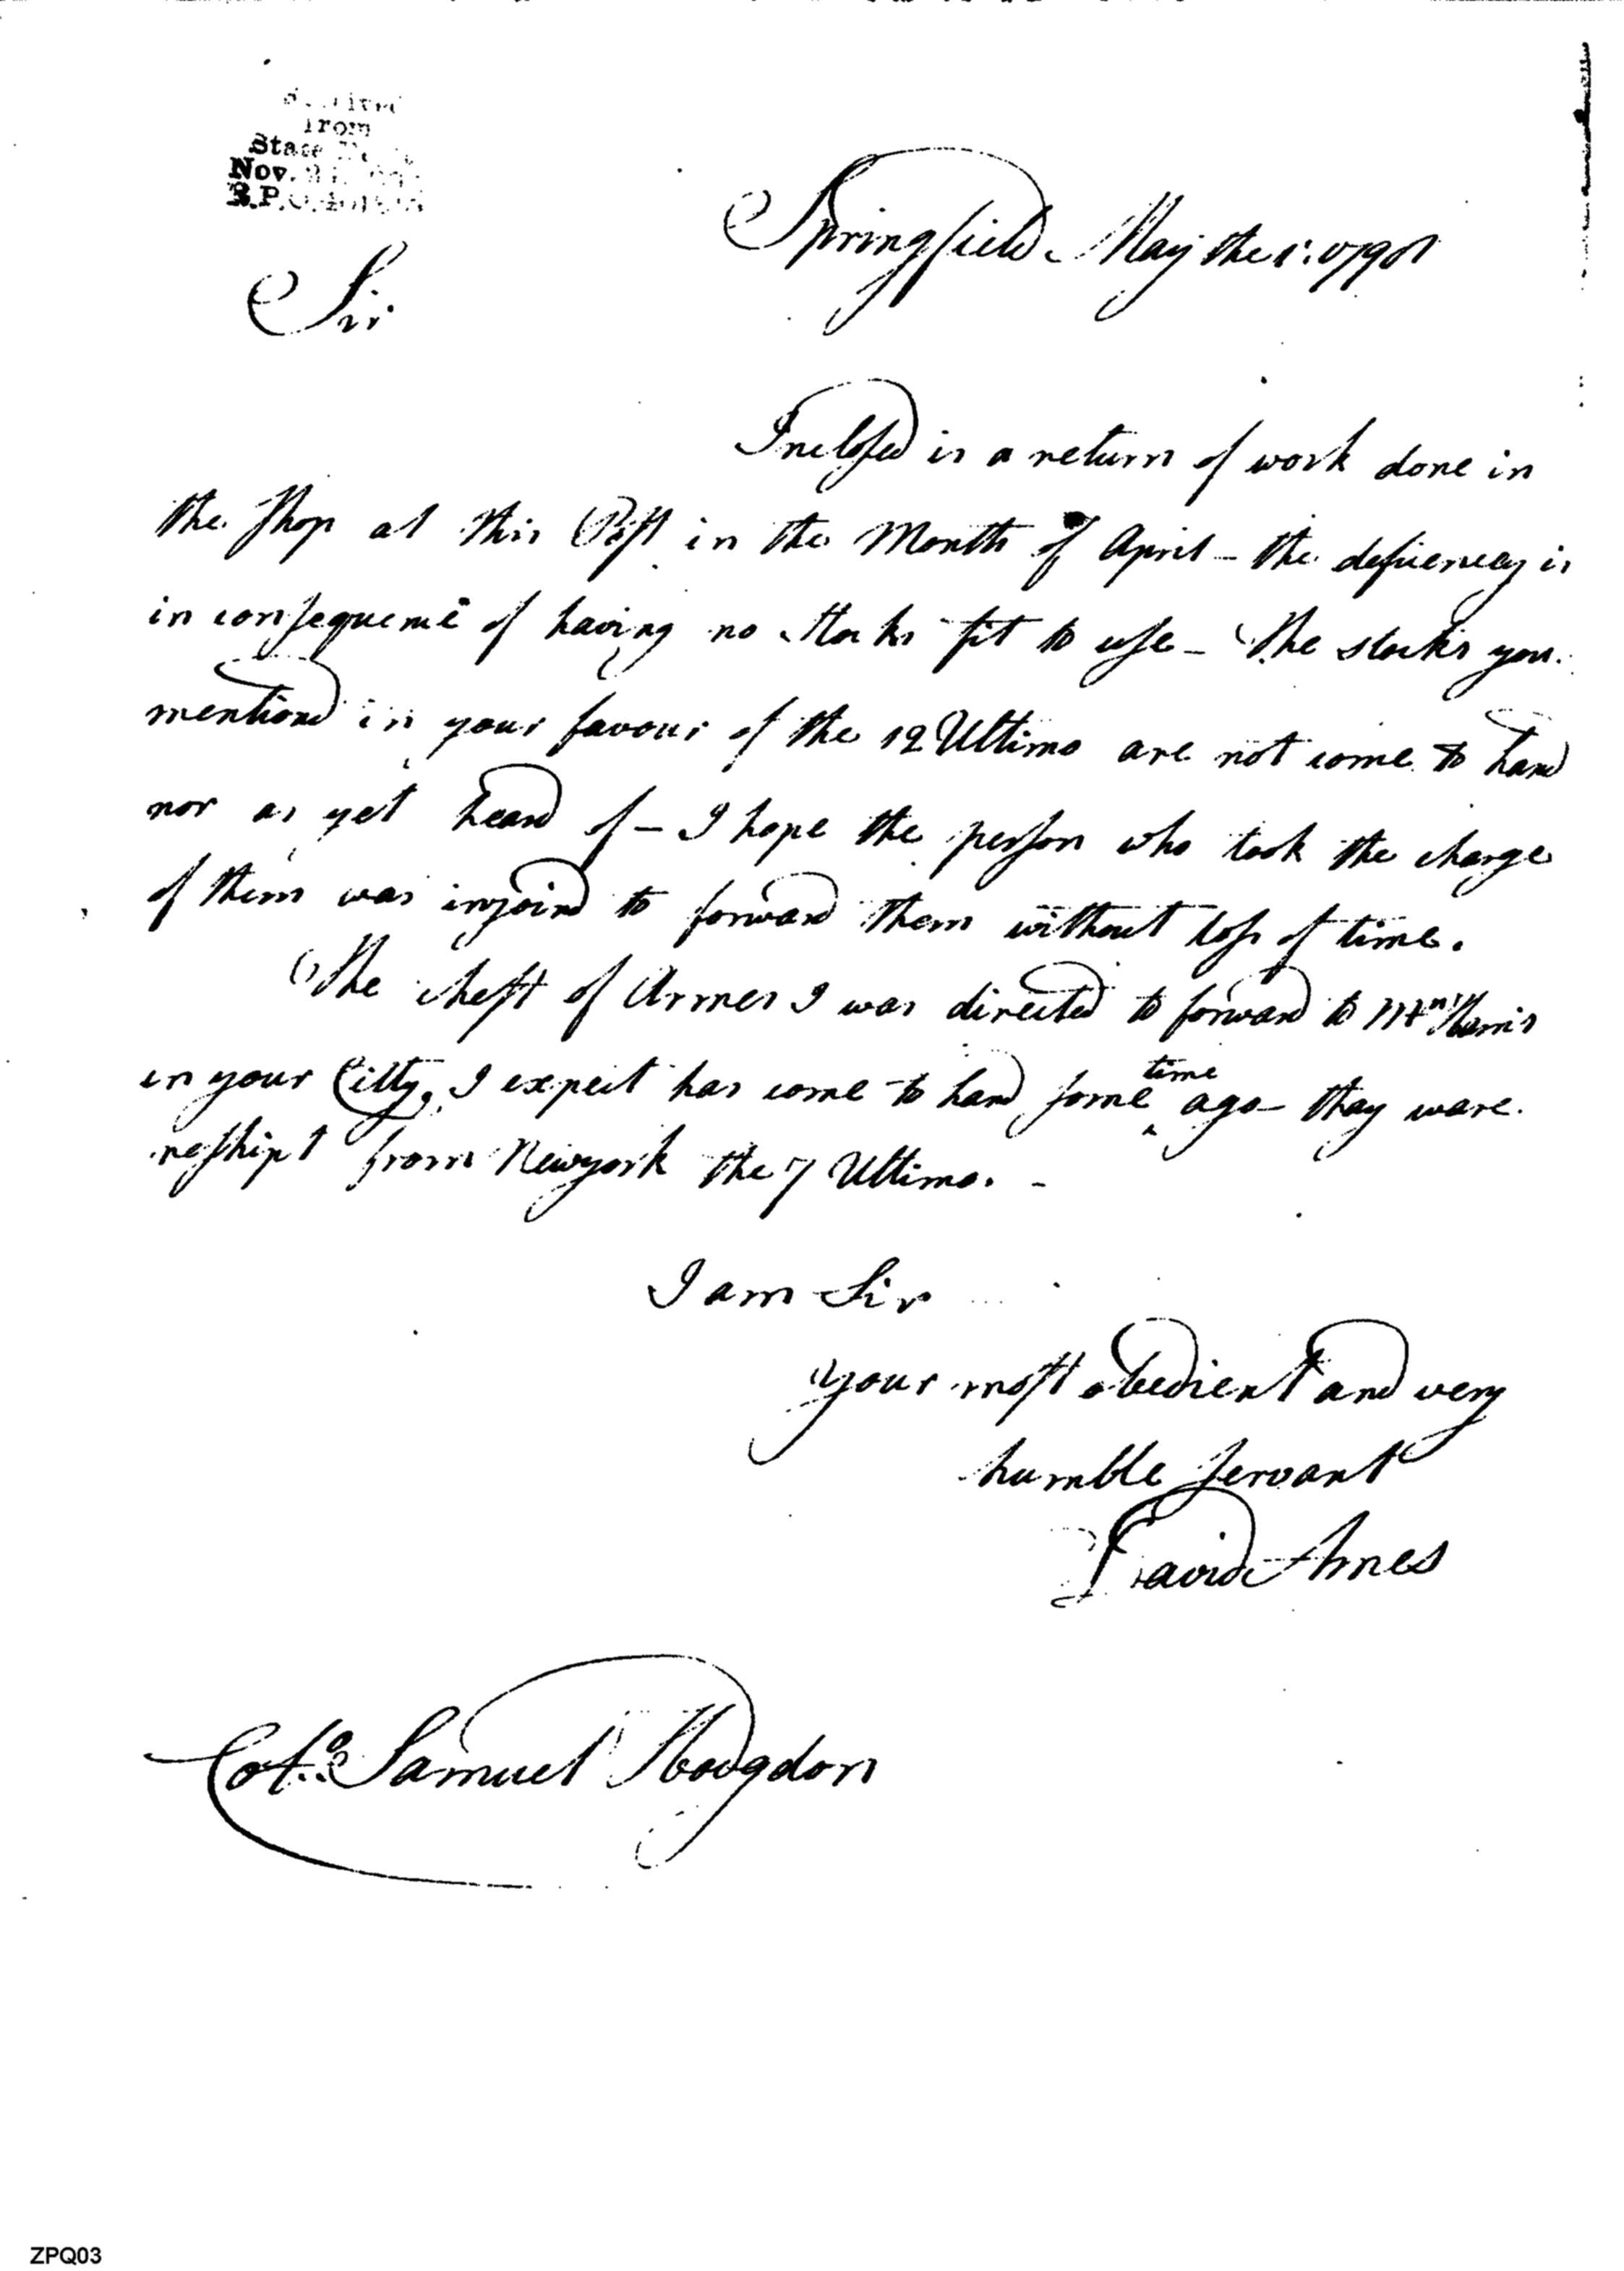 from
State
Nov.
Springfield May the 1: 1798
Sir
Inclosed is a return of work done in
the Shop at this Post in the Month of April – the defiency is
in consequence of having no stocks fit to use – The stocks you
mentiond in your favour of the 12 Ultimo are not come to hand
nor as yet heard of – I hope the person who took the charge
of them was injoind to forward them without loss of time.
The chest of Armes I was directed to forward to Harris
in your Citty, I expect has come to hand some time ago – thay ware
reshipt from Newyork the 7 Ultimo. –
I am Sir
your most obedient and very
humble servant
David Ames
Colo. Samuel Hodgdon
ZPQ03